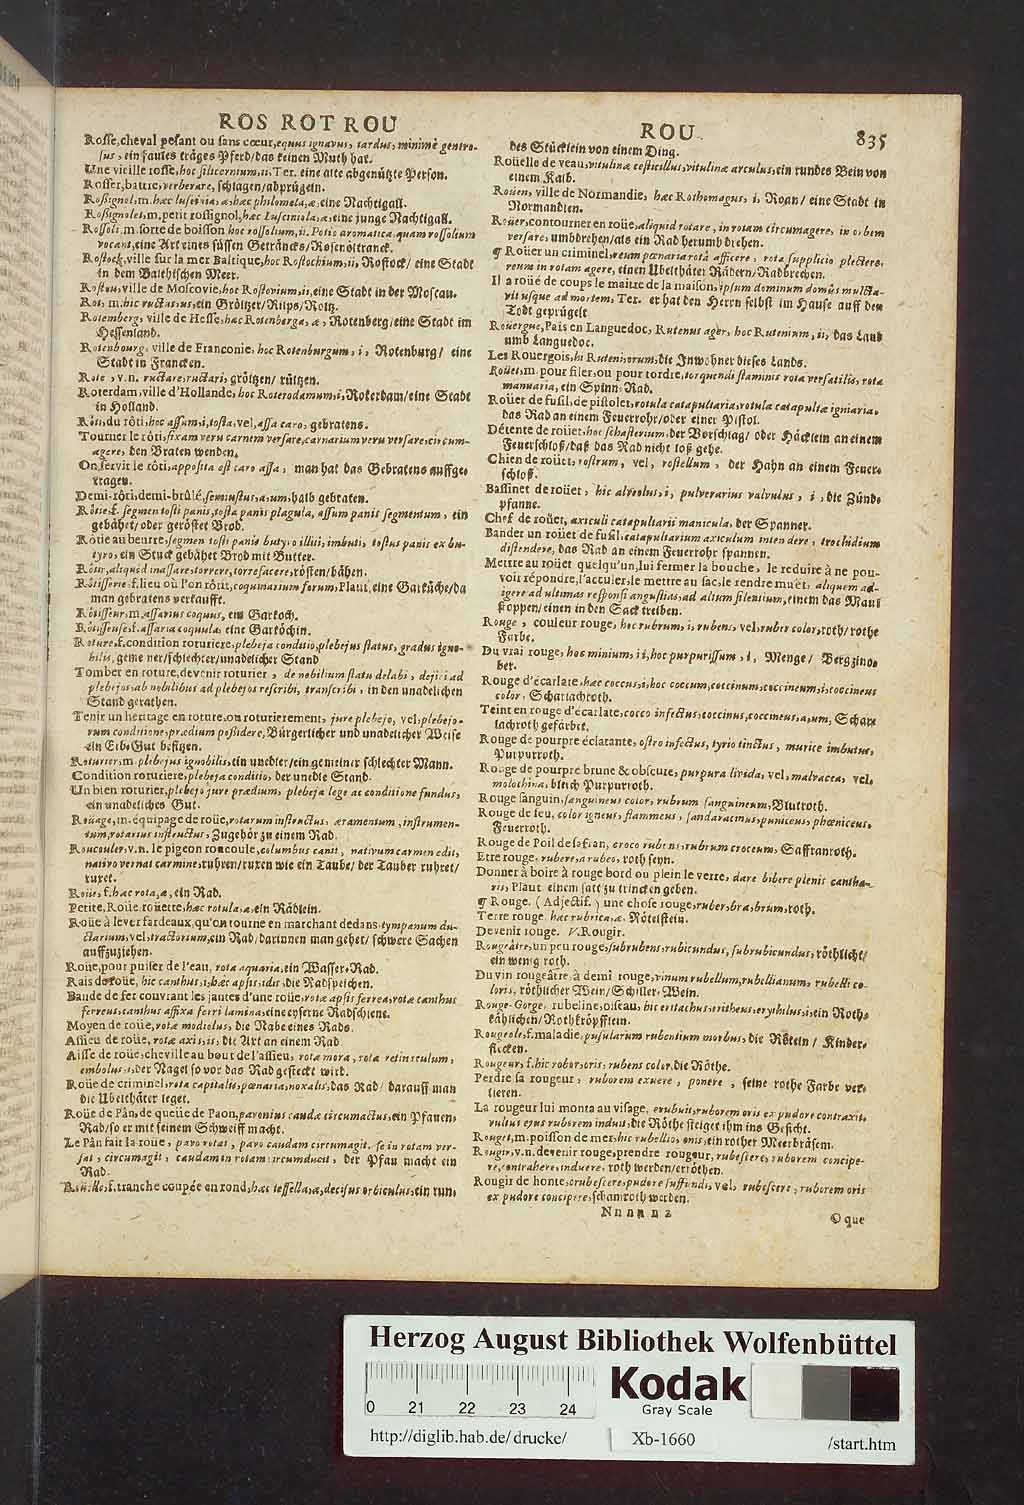 ROS ROT ROU
Rosse, cheval pesant ou sans cœur, equus ignavus, tardus, minimè genero-
sus, ein faules träges Pferd/das keinen Muth hat.
Une vieille rosse, hoc silicernium, ii, Ter. eine alte abgenützte Person.
Rosser, battre, verberare, schlagen/abprügeln.
Rossignol, m. hæc luscinia, æ, hæc philomela, æ, eine Nachtigall.
Rossignolet, m. petit rossignol, hæc Lusciniola, æ, eine junge Nachtigall.
Rossoli, m. sorte de boisson hoc rossolium, ii. Potio aromatica, quam rossolium
vocant, eine Art eines süssen Geträncks/
Rostock, ville sur la mer Baltique, hoc Rostochium, ii, Rostock/ eine Stadt
in dem Balthischen Meer.
Rostou, ville de Moscovie, hoc Rostovium, ii, eine Stadt in der Moscau.
Rot, m. hic ructus, us, ein Gröltzer/Rülps/Roltz.
Rotemberg, ville de Hesse, hæc Rotenberga, æ, Rotenberg/eine Stadt im
Hessenland.
Rotenbourg, ville de Franconie, hoc Rotenburgum, i, Rotenburg/ eine
Stadt in Francken.
Rote, v. n. ructare, ructari, gröltzen/ rültzen.
Roterdam, ville d'Hollande, hoc Roterodamum, i, Roterdam/eine Stadt
in Holland.
Rôti, du rôti, hoc assum, i, tosta, vel, assa caro, gebratens.
Tourner le rôti, fixam veru carnem versare, carnarium veru versare, circum-
agere, den Braten wenden.
On servit le rôti, apposita est caro assa, man hat das Gebratens auffge-
tragen.
Demi-rôti, demi-brûlé, semiustus, a, um, halb gebraten.
Rôtie, f. segmen tosti panis, tosta panis plagula, assum panis segmentum, ein
gebähet/oder geröstet Brod.
Rôtie au beurre, segmen tosti panis butyro illiti, imbuti, tostus panis ex bu-
tyro, ein Stuck gebähet Brod mit Butter.
Rôtir, aliquid inassare, torrere, torrefacere, rösten/bähen.
Rôtisserie, f. lieu où l'on rôtit, coquinarium forum, Plaut. eine Garküche/da
man gebratens verkaufft.
Rôtisseur, m. assarius coquus, ein Garkoch.
Rôtisseuse, f. assaria coquula, eine Garköchin.
Roture, f. condition roturiere, plebeja conditio, plebejus status, gradus igno-
bilis, gemeiner/schlechter/unadelicher Stand
Tomber en roture, devenir roturier, de nobilium statu delabi, dejici ad
plebejos, ab nobilibus ad plebejos rescribi, transcribi, in den unadelichen
Stand gerathen.
Tenir un heritage en roture, ou roturierement, jure plebejo, vel, plebejo-
rum conditione, prædium possidere, Bürgerlicher und unadelicher Weise
ein Erb-Gut besitzen.
Roturier, m. plebejus ignobilis, ein unedler/ein gemeiner schlechter Mann.
Condition roturiere, plebeja conditio, der unedle Stand.
Un bien roturier, plebejo jure prædium, plebeja lege ac conditione fundus,
ein unadeliches Gut.
Roüage, m. équipage de roüe, rotarum instructus, æramentum, instrumen-
tum, rotarius instructus, Zugehör zu einem Rad.
Roucouler, v. n. le pigeon roucoule, columbus canit, nativum carmen edit,
nativo vernat carmine, ruhren/ruxen wie ein Taube/ der Tauber ruhret/
ruxet.
Roüe, f. hæc rota, æ, ein Rad.
Petite, Roüe, roüette, hæc rotula, æ, ein Rädlein.
Roüe à lever fardeaux, qu'on tourne en marchant dedans, tympanum du-
ctarium, vel, tractorium, ein Rad/darinnen man gehet/ schwere Sachen
auffzuziehen.
Roüe, pour puiser de l'eau, rota aquaria, ein Wasser-Rad.
Rais de roüe, hic canthus, i, hæc apsis, idis, die Radspeichen.
Bande de fer couvrant les jantes d'une roüe, rotæ apsis ferrea, rotæ canthus
ferreus, canthus affixa ferri lamina, eine eyserne Radschiene.
Moyen de roüe, rotæ modiolus, die Nabe eines Rads.
Assieu de roüe, rotæ axis, is, die Art an einem Rad
Aisse de roüe, cheville au bout de l'assieu, rotæ mora, rota retinaculum,
embolus, i, der Nagel so vor das Rad gesteckt wird.
Roüe de criminel, rota capitalis, pœnaria, noxalis, das Rad/ darauff man
die Ubelthäter leget.
Roüe de Pân, de queüe de Paon, pavonius caudæ circumactus, ein Pfauen-
Rad/so er mit seinem Schweiff macht.
Le Pân fait la roüe, pavo rotat, pavo caudam circumagit, se in rotam ver-
sat, circumagit, caudam in rotam circumducit, der Pfau macht ein
Rad.
Roüelle, f. tranche coupée en rond, hæc tessella, æ, decisus orbiculus, ein run-
ROU.
835
des Stücklein von einem Ding.
Roüelle de veau, vitulinæ cesticillus, vitulinæ arculus, ein rundes Bein von
einem Kalb.
Roüen, ville de Normandie, hæc Rothomagus, i, Roan/ eine Stadt in
Normandien.
Roüer, contourner en roüe, aliquid rotare, in rotam circumagere, in orbem
versare, umbdrehen/als ein Rad herumb drehen.
¶ Roüer un criminel, reum pœnaria rotâ afficere, rotæ supplicio plectere,
reum in rotam agere, einen Ubelthäter Rädern/Radbrechen.
Il a roüé de coups le maître de la maison, ipsum dominum domûs mulcta-
vit usque ad mortem, Ter. er hat den Herrn selbst im Hause auff den
Todt geprügelt
Roüergue, Païs en Languedoc, Rutenus ager, hoc Rutenium, ii, das Land
umb Languedoc.
Les Rouergois, hi Ruteni, orum, die Inwohner dieses Lands.
Roüet, m. pour filer, ou pour tordre, torquendi staminis rota versatilis, rota
manuaria, ein Spinn-Rad.
Roüet de fusil, de pistolet, rotula catapultaria, rotula catapultæ igniaria,
das Rad an einem Feuerrohr/oder einer Pistol.
Détente de roüet, hoc schasterium, der Vorschlag/ oder Häcklein an einem
Feuerschloß/daß das Rad nicht loß gehe.
Chien de roüet, rostrum, vel, rostellum, der Hahn an einem Feuer-
schloß.
Bassinet de roüet, hic alveolus, i, pulverarius valvulus, i, die Zünd-
pfanne.
Chef de roüet, axiculi catapultarii manicula, der Spanner.
Bander un roüet de fusil, catapultarium axiculum intendere, trochidium
distendere, das Rad an einem Feuerrohr spannen.
Mettre au roüet quelqu'un, lui fermer la bouche, le reduire à ne pou-
voir répondre, l'acculer, le mettre au sac, le rendre muët, aliquem ad-
igere ad ultimas responsi angustias, ad altum silentium, einem das Maul
stoppen/einen in den Sack treiben.
Rouge, couleur rouge, hoc rubrum, i, rubens, vel, ruber color, roth/rothe
Farbe.
Du vrai rouge, hoc minium, ii, hoc purpurissum, i, Menge/ Bergzino-
ber.
Rouge d'écarlate, hæc coccus, i, hoc coccum, coccinum, coccineum, i, coccineus
color, Scharlachroth.
Teint en rouge d'écarlate, cocco infectus, coccinus, coccineus, a, um, Schar-
lachroth gefärbet.
Rouge de pourpre éclatante, ostro infectus, tyrio tinctus, murice imbutus,
Purpurroth.
Rouge de pourpre brune & obscure, purpura livida, vel, malvacea, vel,
molochina, bleich Purpurroth.
Rouge sanguin, sanguineus color, rubrum sanguineum, Blutroth.
Rouge de feu, color igneus, flammeus, sandaracinus, puniceus, phœniceus,
Feuerroth.
Rouge de Poil de safran, croco rubens, rubrum croceum, Saffranroth.
Etre rouge, rubere, a rubeo, roth seyn.
Donner à boire à rouge bord ou plein le verre, dare bibere plenis cantha-
ris, Plaut. einem satt zu trincken geben.
¶ Rouge. (Adjectif.) une chose rouge, ruber, bra, brum, roth.
Terre rouge hæc rubrica, æ. Rötelstein.
Devenir rouge. V. Rougir.
Rougeâtre, un peu rouge, subrubens, rubicundus, subrubicundus, röthlicht/
ein wenig roth.
Du vin rougeâtre, à demi rouge, vinum rubellum, rubellianum, rubelli co-
loris, röthlicher Wein/Schiller-Wein.
Rouge-Gorge, rubeline, oiseau, hic eritachus, eritheus, erythilus, i, ein Roth-
kählichen/Rothkröpfflein.
Rougeole, f. maladie, pusularum rubentium morbus, die Röteln/ Kinder-
flecken.
Rougeur, f. hic robor, oris, rubens color, die Röthe.
Perdre sa rougeur, ruborem exuere, ponere, seine rothe Farbe ver-
lieren.
La rougeur lui monta au visage, erubuit, ruborem oris ex pudore contraxit,
vultus ejus ruborem induit, die Röthe steiget ihm ins Gesicht.
Rouget, m. poisson de mer, hic rubellio, onis, ein rother Meerbräsem.
Rougir, v. n. devenir rouge, prendre rougeur, rubescere, ruborem concipe-
re, contrahere, induere, roth werden/eröthen.
Rougir de honte, erubescere, pudore suffundi, vel, rubescere, ruborem oris
ex pudore concipere, schamroth werden.
Nnnnn 2
© que
Herzog August Bibliothek Wolfenbüttel
Kodak
Gray Scale
0 21 22 23 24
http://diglib.hab.de/drucke/
Xb-1660
/start.htm